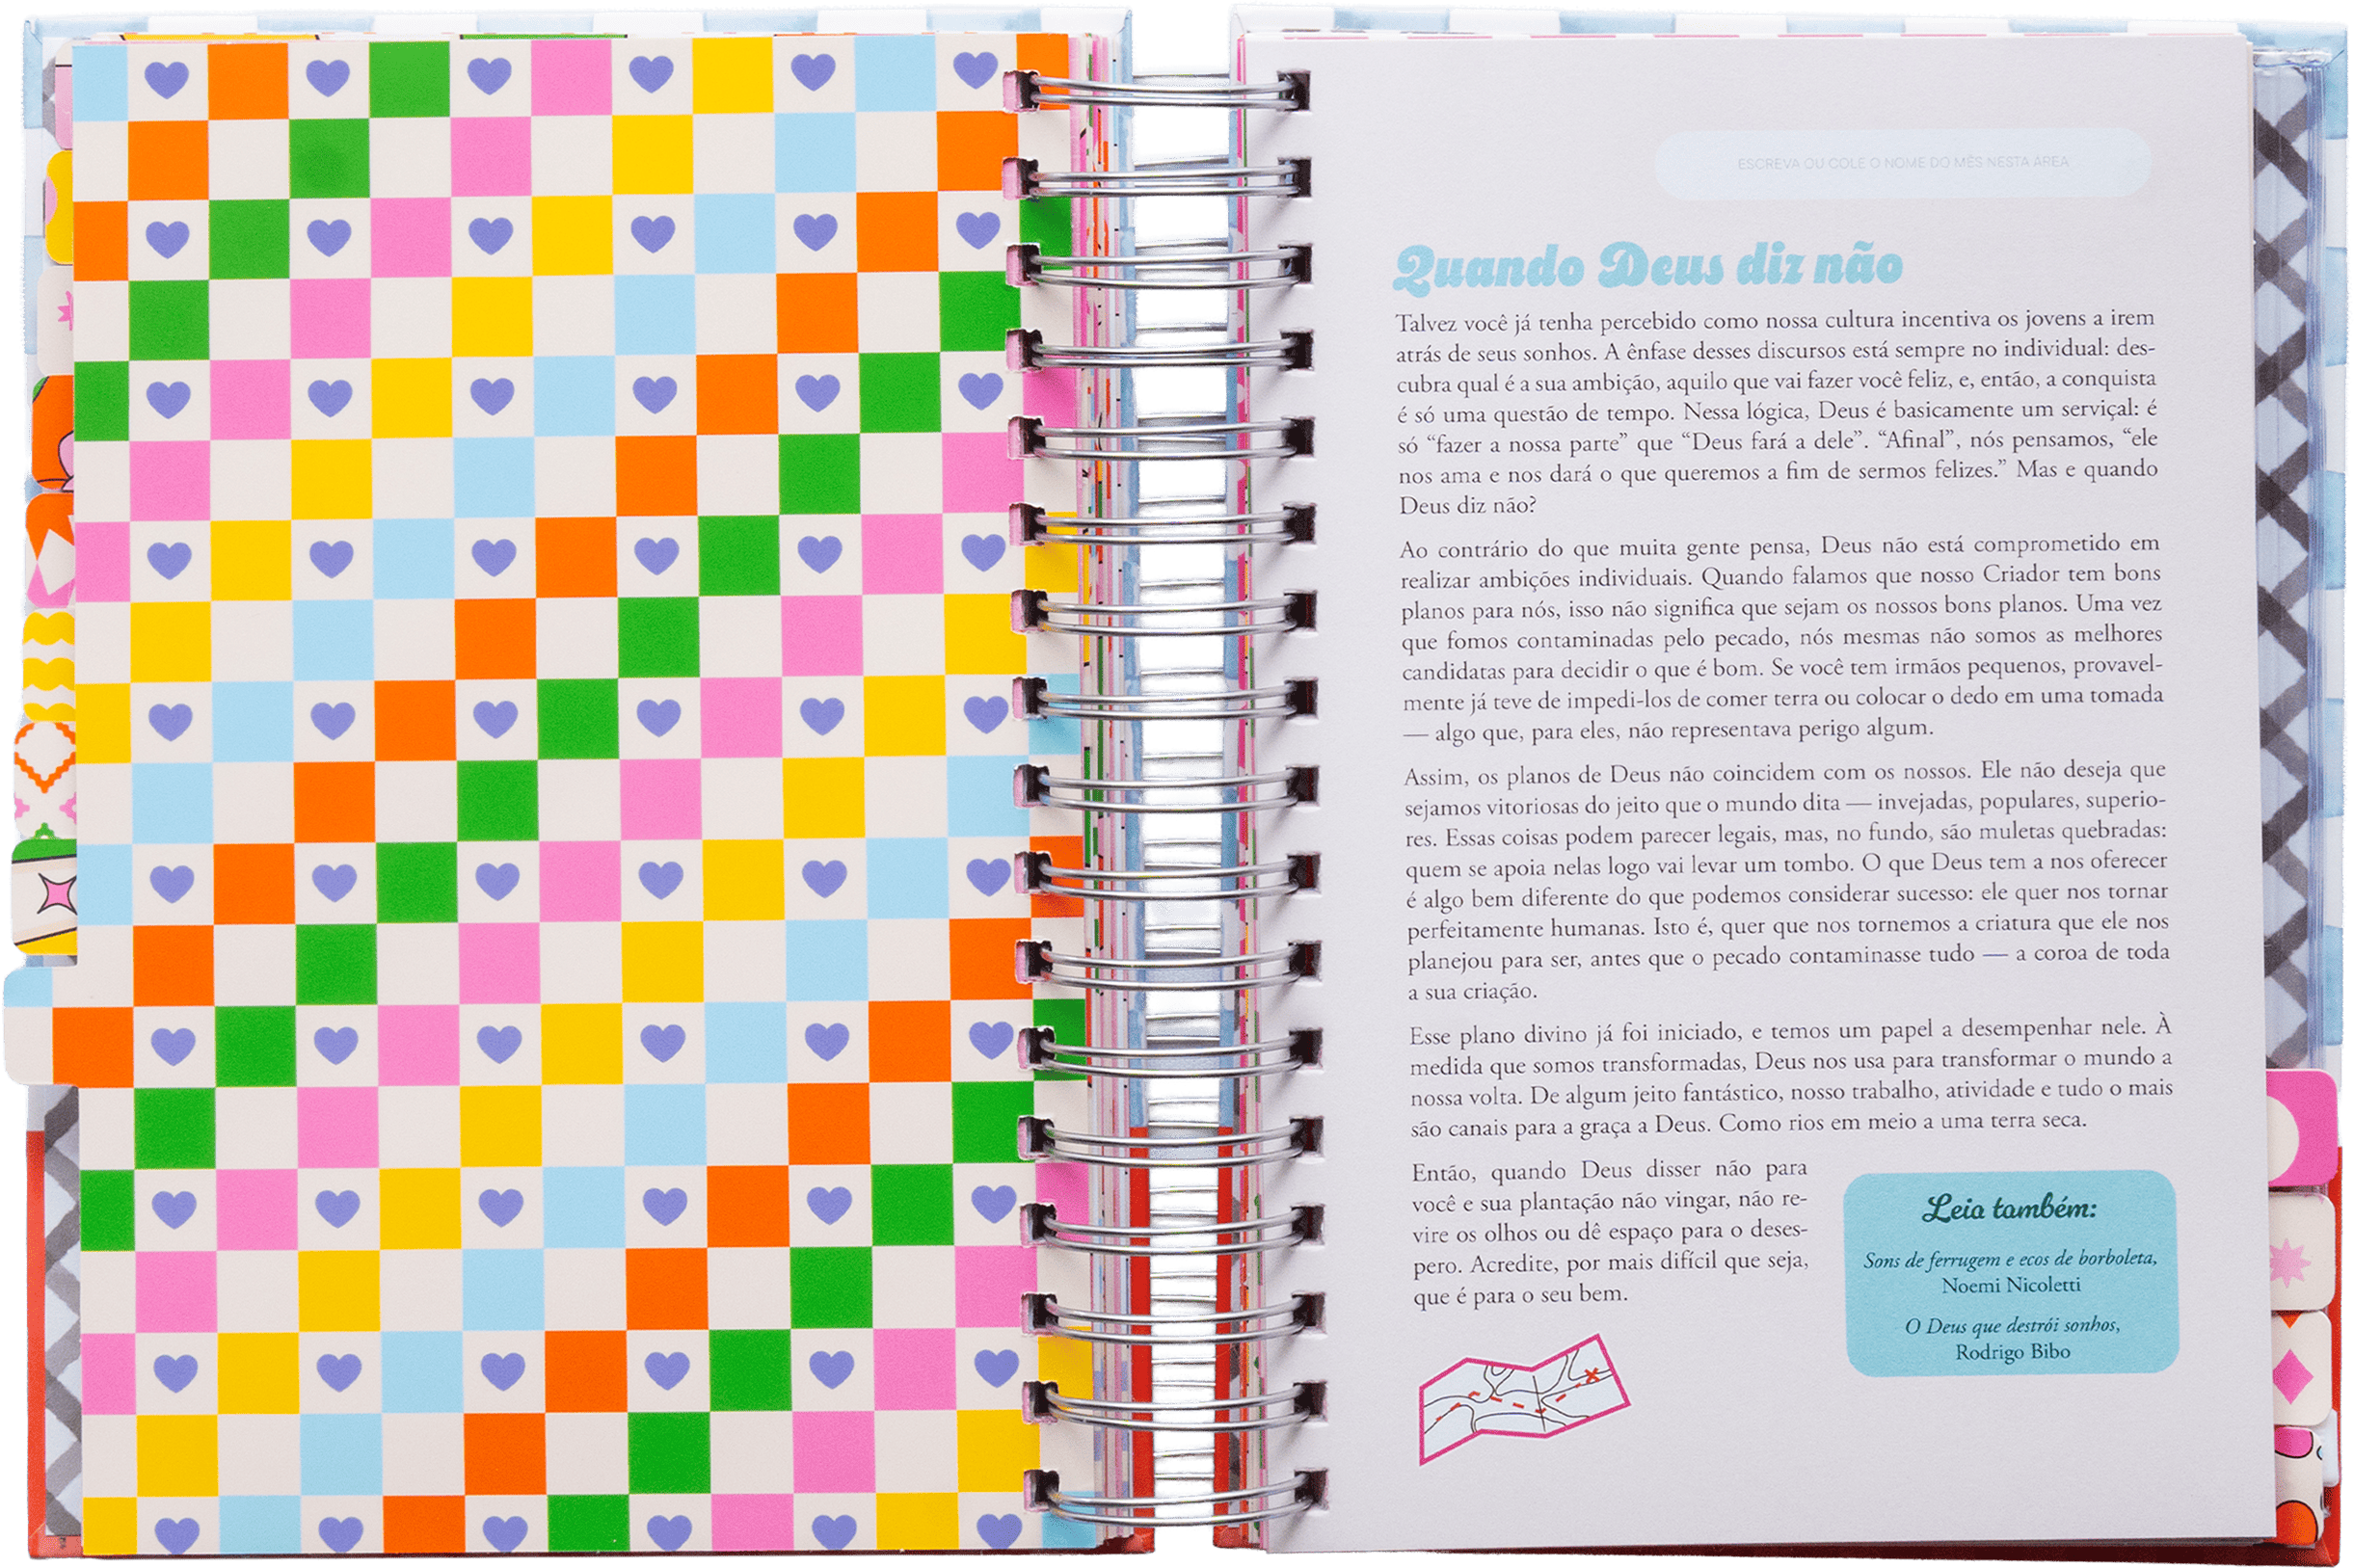 ESCREVA OU COLE O NOME DO MÊS NESTA ÁREA
Quando Deus diz não
Talvez você já tenha percebido como nossa cultura incentiva os jovens a irem
atrás de seus sonhos. A ênfase desses discursos está sempre no individual: des-
cubra qual é a sua ambição, aquilo que vai fazer você feliz, e, então, a conquista
é só uma questão de tempo. Nessa lógica, Deus é basicamente um serviçal: é
só “fazer a nossa parte” que “Deus fará a dele”. “Afinal”, nós pensamos, “ele
nos ama e nos dará o que queremos a fim de sermos felizes.” Mas e quando
Deus diz não?
Ao contrário do que muita gente pensa, Deus não está comprometido em
realizar ambições individuais. Quando falamos que nosso Criador tem bons
planos para nós, isso não significa que sejam os nossos bons planos. Uma vez
que fomos contaminadas pelo pecado, nós mesmas não somos as melhores
candidatas para decidir o que é bom. Se você tem irmãos pequenos, provavel-
mente já teve de impedi-los de comer terra ou colocar o dedo em uma tomada
— algo que, para eles, não representava perigo algum.
Assim, os planos de Deus não coincidem com os nossos. Ele não deseja que
sejamos vitoriosas do jeito que o mundo dita — invejadas, populares, superio-
res. Essas coisas podem parecer legais, mas, no fundo, são muletas quebradas:
quem se apoia nelas logo vai levar um tombo. O que Deus tem a nos oferecer
é algo bem diferente do que podemos considerar sucesso: ele quer nos tornar
perfeitamente humanas. Isto é, quer que nos tornemos a criatura que ele nos
planejou para ser, antes que o pecado contaminasse tudo — a coroa de toda
a sua criação.
Esse plano divino já foi iniciado, e temos um papel a desempenhar nele. À
medida que somos transformadas, Deus nos usa para transformar o mundo a
nossa volta. De algum jeito fantástico, nosso trabalho, atividade e tudo o mais
são canais para a graça a Deus. Como rios em meio a uma terra seca.
Então, quando Deus disser não para
você e sua plantação não vingar, não re-
vire os olhos ou dê espaço para o deses-
pero. Acredite, por mais difícil que seja,
que é para o seu bem.
Leia também:
Sons de ferrugem e ecos de borboleta,
Noemi Nicoletti
O Deus que destrói sonhos,
Rodrigo Bibo